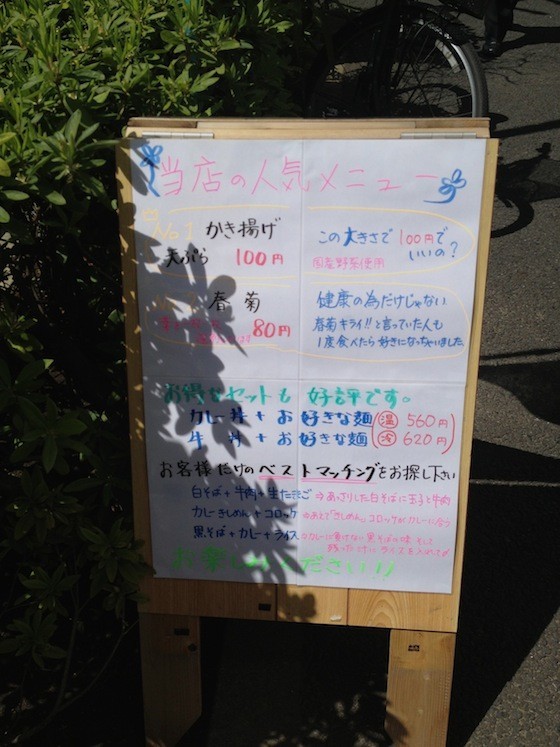 当店の人気メニュー
No.1 かき揚げ
天ぷら 100円
この大きさで100円で
いいの?
国産野菜使用
春菊
80円
健康の為だけじゃない
春菊キライ!!と言っていた人も
1度食べたら好きになっちゃいました
お得なセットも 好評です。
カレー丼+お好きな麺
牛丼+お好きな麺
(温) 560円
(冷) 620円
お客様だけのベストマッチングをお探し下さい
白そば+牛肉+生たまご⇒あっさりした白そばに玉子と牛肉
カレーきしめん+コロッケ⇒あとで「きしめん」コロッケがカレーに合う
黒そば+カレー+ライス⇒カレーに負けない黒そばの味 そして
残ったカレーにライスを入れて♪
お楽しみください!!